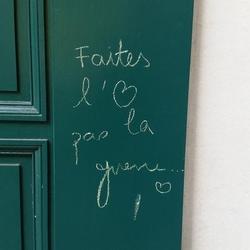 Faites
l'♡
pas la
guerre... ♡
!